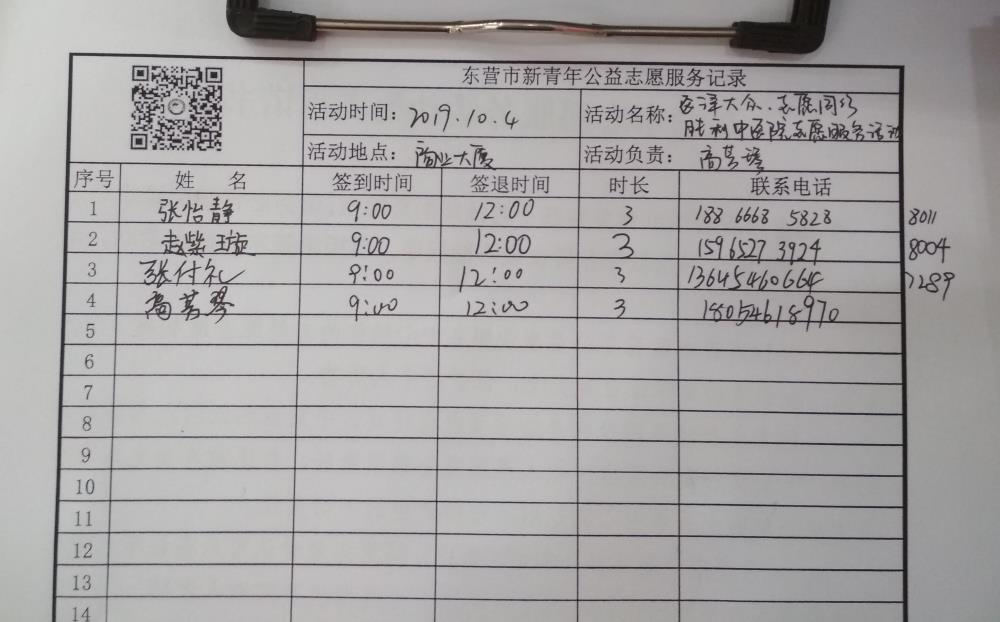 东营市新青年公益志愿服务记录
活动时间：2019.10.4
活动名称：大众、志愿同行
胜利中医院志愿服务活动
活动地点：商业大厦
活动负责：高
序号 姓 名 签到时间 签退时间 时长 联系电话
1 张怡静 9:00 12:00 3 188 6668 5828 8011
2 赵紫璇 9:00 12:00 3 1596527 3924 8004
3 张付礼 9:00 12:00 3 13645460664 7289
4 高 9:00 12:00 3 18054618970
5
6
7
8
9
10
11
12
13
14